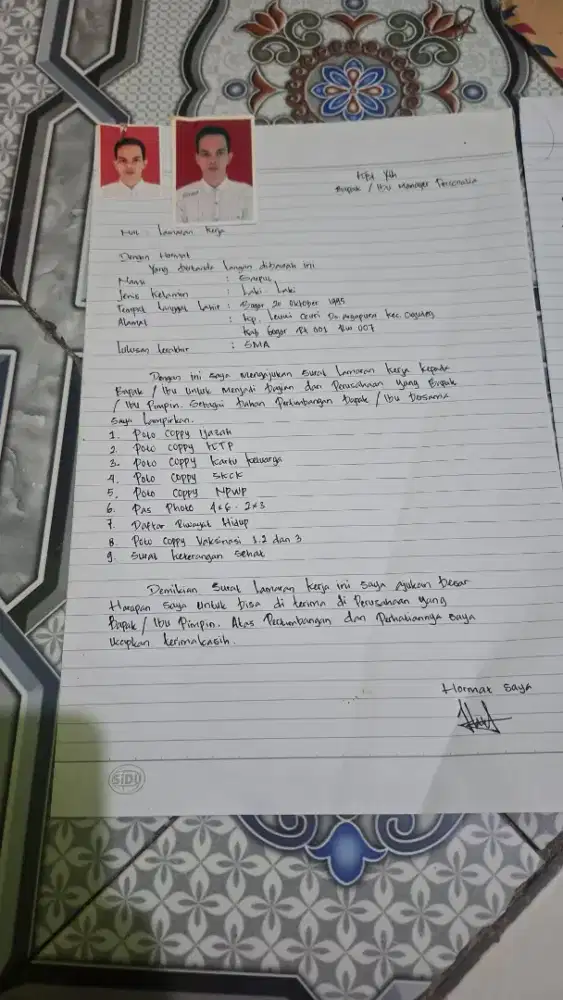 Kpd Yth
Bapak / Ibu Manager Personalia
Hal : Lamaran Kerja
Dengan Hormat
Yang bertanda tangan dibawah ini
Nama :
Jenis Kelamin : Laki - Laki
Tempat tanggal lahir : Bogor 20 Oktober 1985
Alamat : Kp. Leuwi Ds. Kec.
Kab Bogor Rt 001 Rw 007
Lulusan terakhir : SMA
Dengan ini saya mengajukan surat lamaran kerja kepada
Bapak / Ibu untuk menjadi bagian dari Perusahaan yang Bapak
/ Ibu Pimpin. Sebagai bahan Pertimbangan Bapak / Ibu bersama
saya lampirkan.
1. Poto Coppy Ijazah
2. Poto Coppy KTP
3. Poto Coppy Kartu keluarga
4. Poto Coppy SKCK
5. Poto Coppy NPWP
6. Pas Photo 4x6 - 2x3
7. Daftar Riwayat Hidup
8. Poto Coppy Vaksinasi 1.2 dan 3
9. Surat keterangan Sehat
Demikian surat lamaran kerja ini saya ajukan besar
Harapan saya untuk bisa di terima di Perusahaan yang
Bapak / Ibu Pimpin. Atas Pertimbangan dan Perhatiannya saya
ucapkan terimakasih.
Hormat saya
SIDU